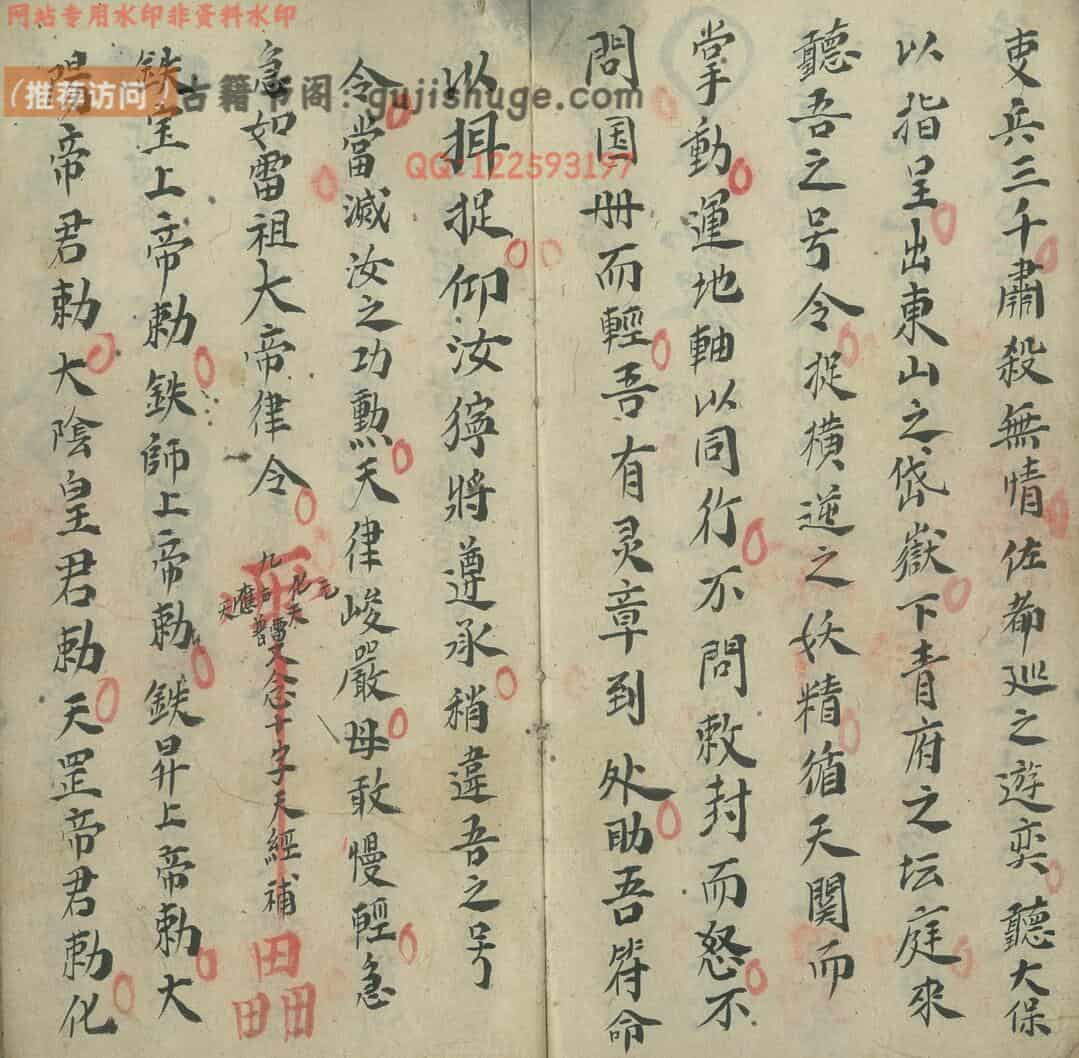 吏兵三千肅殺無情佐都巡之遊奕聽大保
以指呈出東山之岱嶽下青府之坛庭來
聽吾之号令捉横逆之妖精循天関而
掌動運地軸以同行不問敕封而怒不
問国册而輕吾有灵章到处助吾符命
以捉仰汝獰將遵承稍違吾之号
令當滅汝之功勲天律峻嚴毋敢慢輕急
急如雷祖大帝律令
九天應元雷普化天
又念十字天經補
雷
鉄皇上帝勅鉄師上帝勅鉄昇上帝勅大
陽帝君勅大陰皇君勅天罡帝君勅化
网站专用水印非资料水印
(推荐访问)古籍书阁:gujishuge.com
QQ:122593197